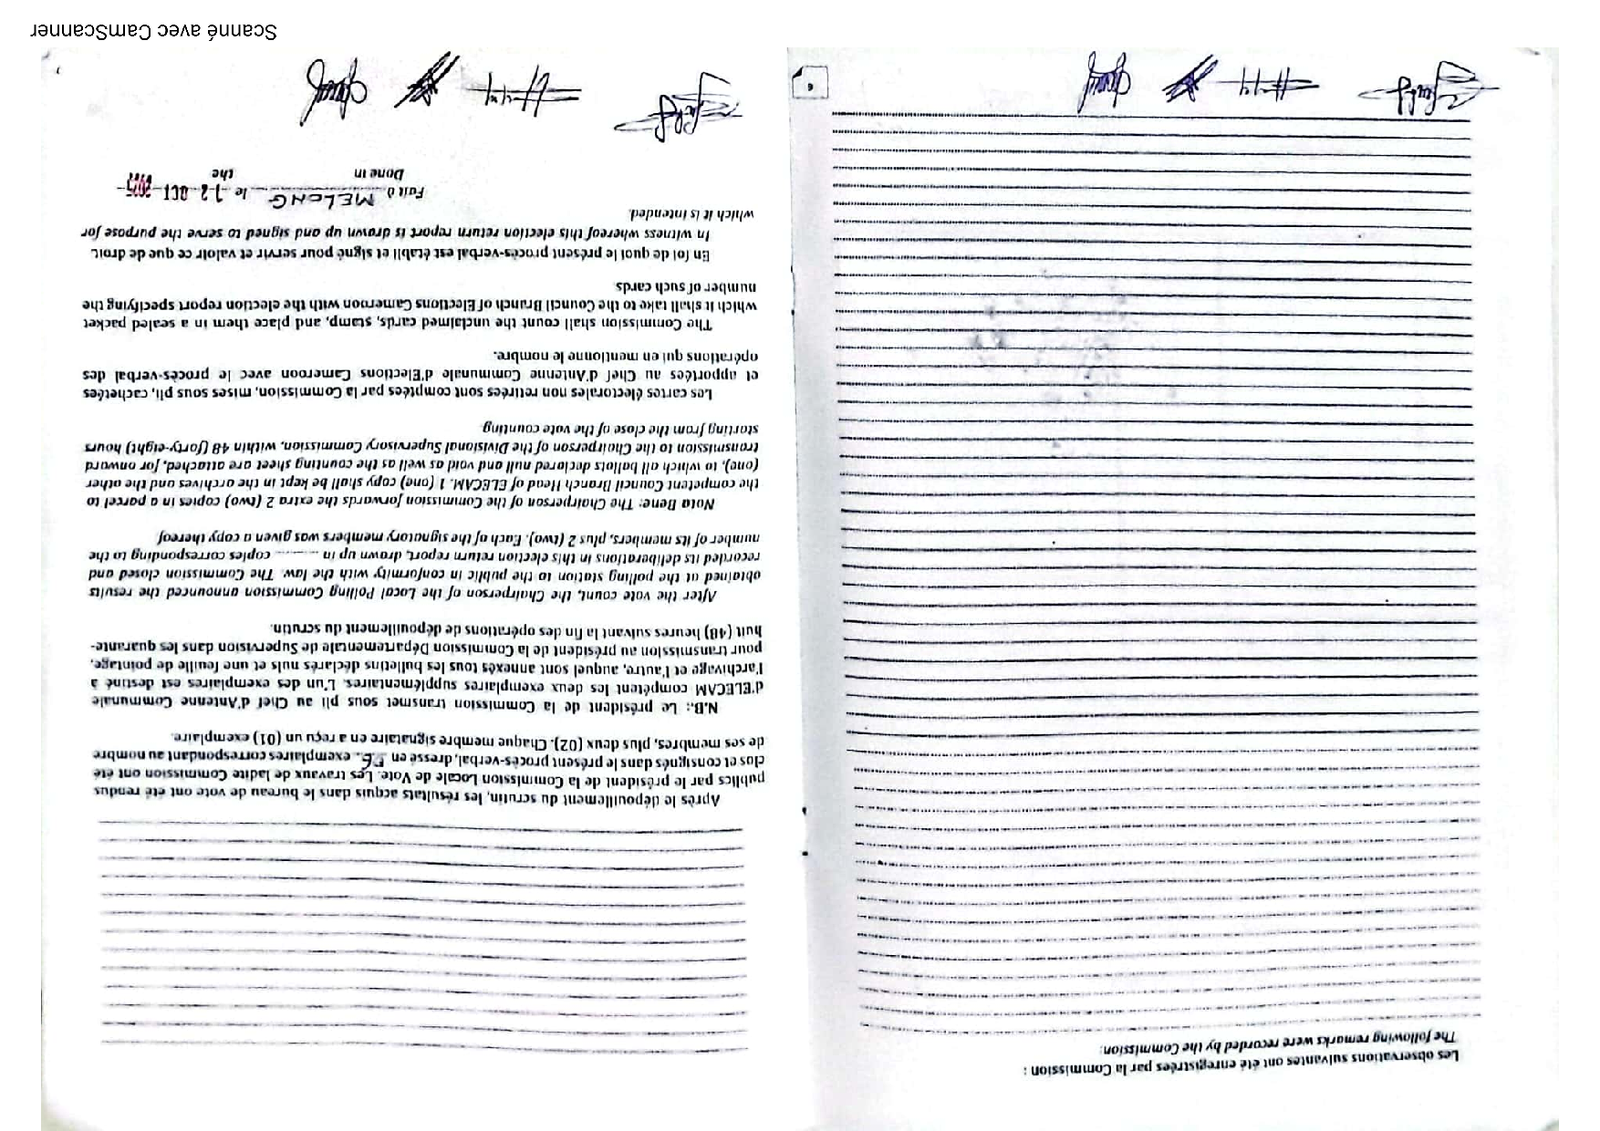 Les observations suivantes ont été enregistrées par la Commission :
The following remarks were recorded by the Commission:
Après le dépouillement du scrutin, les résultats acquis dans le bureau de vote ont été rendus
publics par le président de la Commission Locale de Vote. Les travaux de ladite Commission ont été
clos et consignés dans le présent procès-verbal, dressé en exemplaires correspondant au nombre
de ses membres, plus deux (02). Chaque membre signataire en a reçu un (01) exemplaire.
N.B.: Le président de la Commission transmet sous pli au Chef d'Antenne Communale
d'ELECAM compétent les deux exemplaires supplémentaires. L'un des exemplaires est destiné à
l'archivage et l'autre, auquel sont annexés tous les bulletins déclarés nuls et une feuille de pointage,
pour transmission au président de la Commission Départementale de Supervision dans les quarante-
huit (48) heures suivant la fin des opérations de dépouillement du scrutin.
After the vote count, the Chairperson of the Local Polling Commission announced the results
obtained at the polling station to the public in conformity with the law. The Commission closed and
recorded its deliberations in this election return report, drawn up in ............ copies corresponding to the
number of its members, plus 2 (two). Each of the signatory members was given a copy thereof
Nota Bene: The Chairperson of the Commission forwards the extra 2 (two) copies in a parcel to
the competent Council Branch Head of ELECAM. 1 (one) copy shall be kept in the archives and the other
(one), to which all ballots declared null and void as well as the counting sheet are attached, for onward
transmission to the Chairperson of the Divisional Supervisory Commission, within 48 (forty-eight) hours
starting from the close of the vote counting.
Les cartes électorales non retirées sont comptées par la Commission, mises sous pli, cachetées
et apportées au Chef d'Antenne Communale d'Elections Cameroon avec le procès-verbal des
opérations qui en mentionne le nombre.
The Commission shall count the unclaimed cards, stamp, and place them in a sealed packet
which it shall take to the Council Branch of Elections Cameroon with the election report specifying the
number of such cards
En foi de quoi le présent procès-verbal est établi et signé pour servir et valoir ce que de droit.
In witness whereof this election return report is drawn up and signed to serve the purpose for
which it is intended.
Fait à MELONG le 12 OCT 2025
Done in the
Scanné avec CamScanner